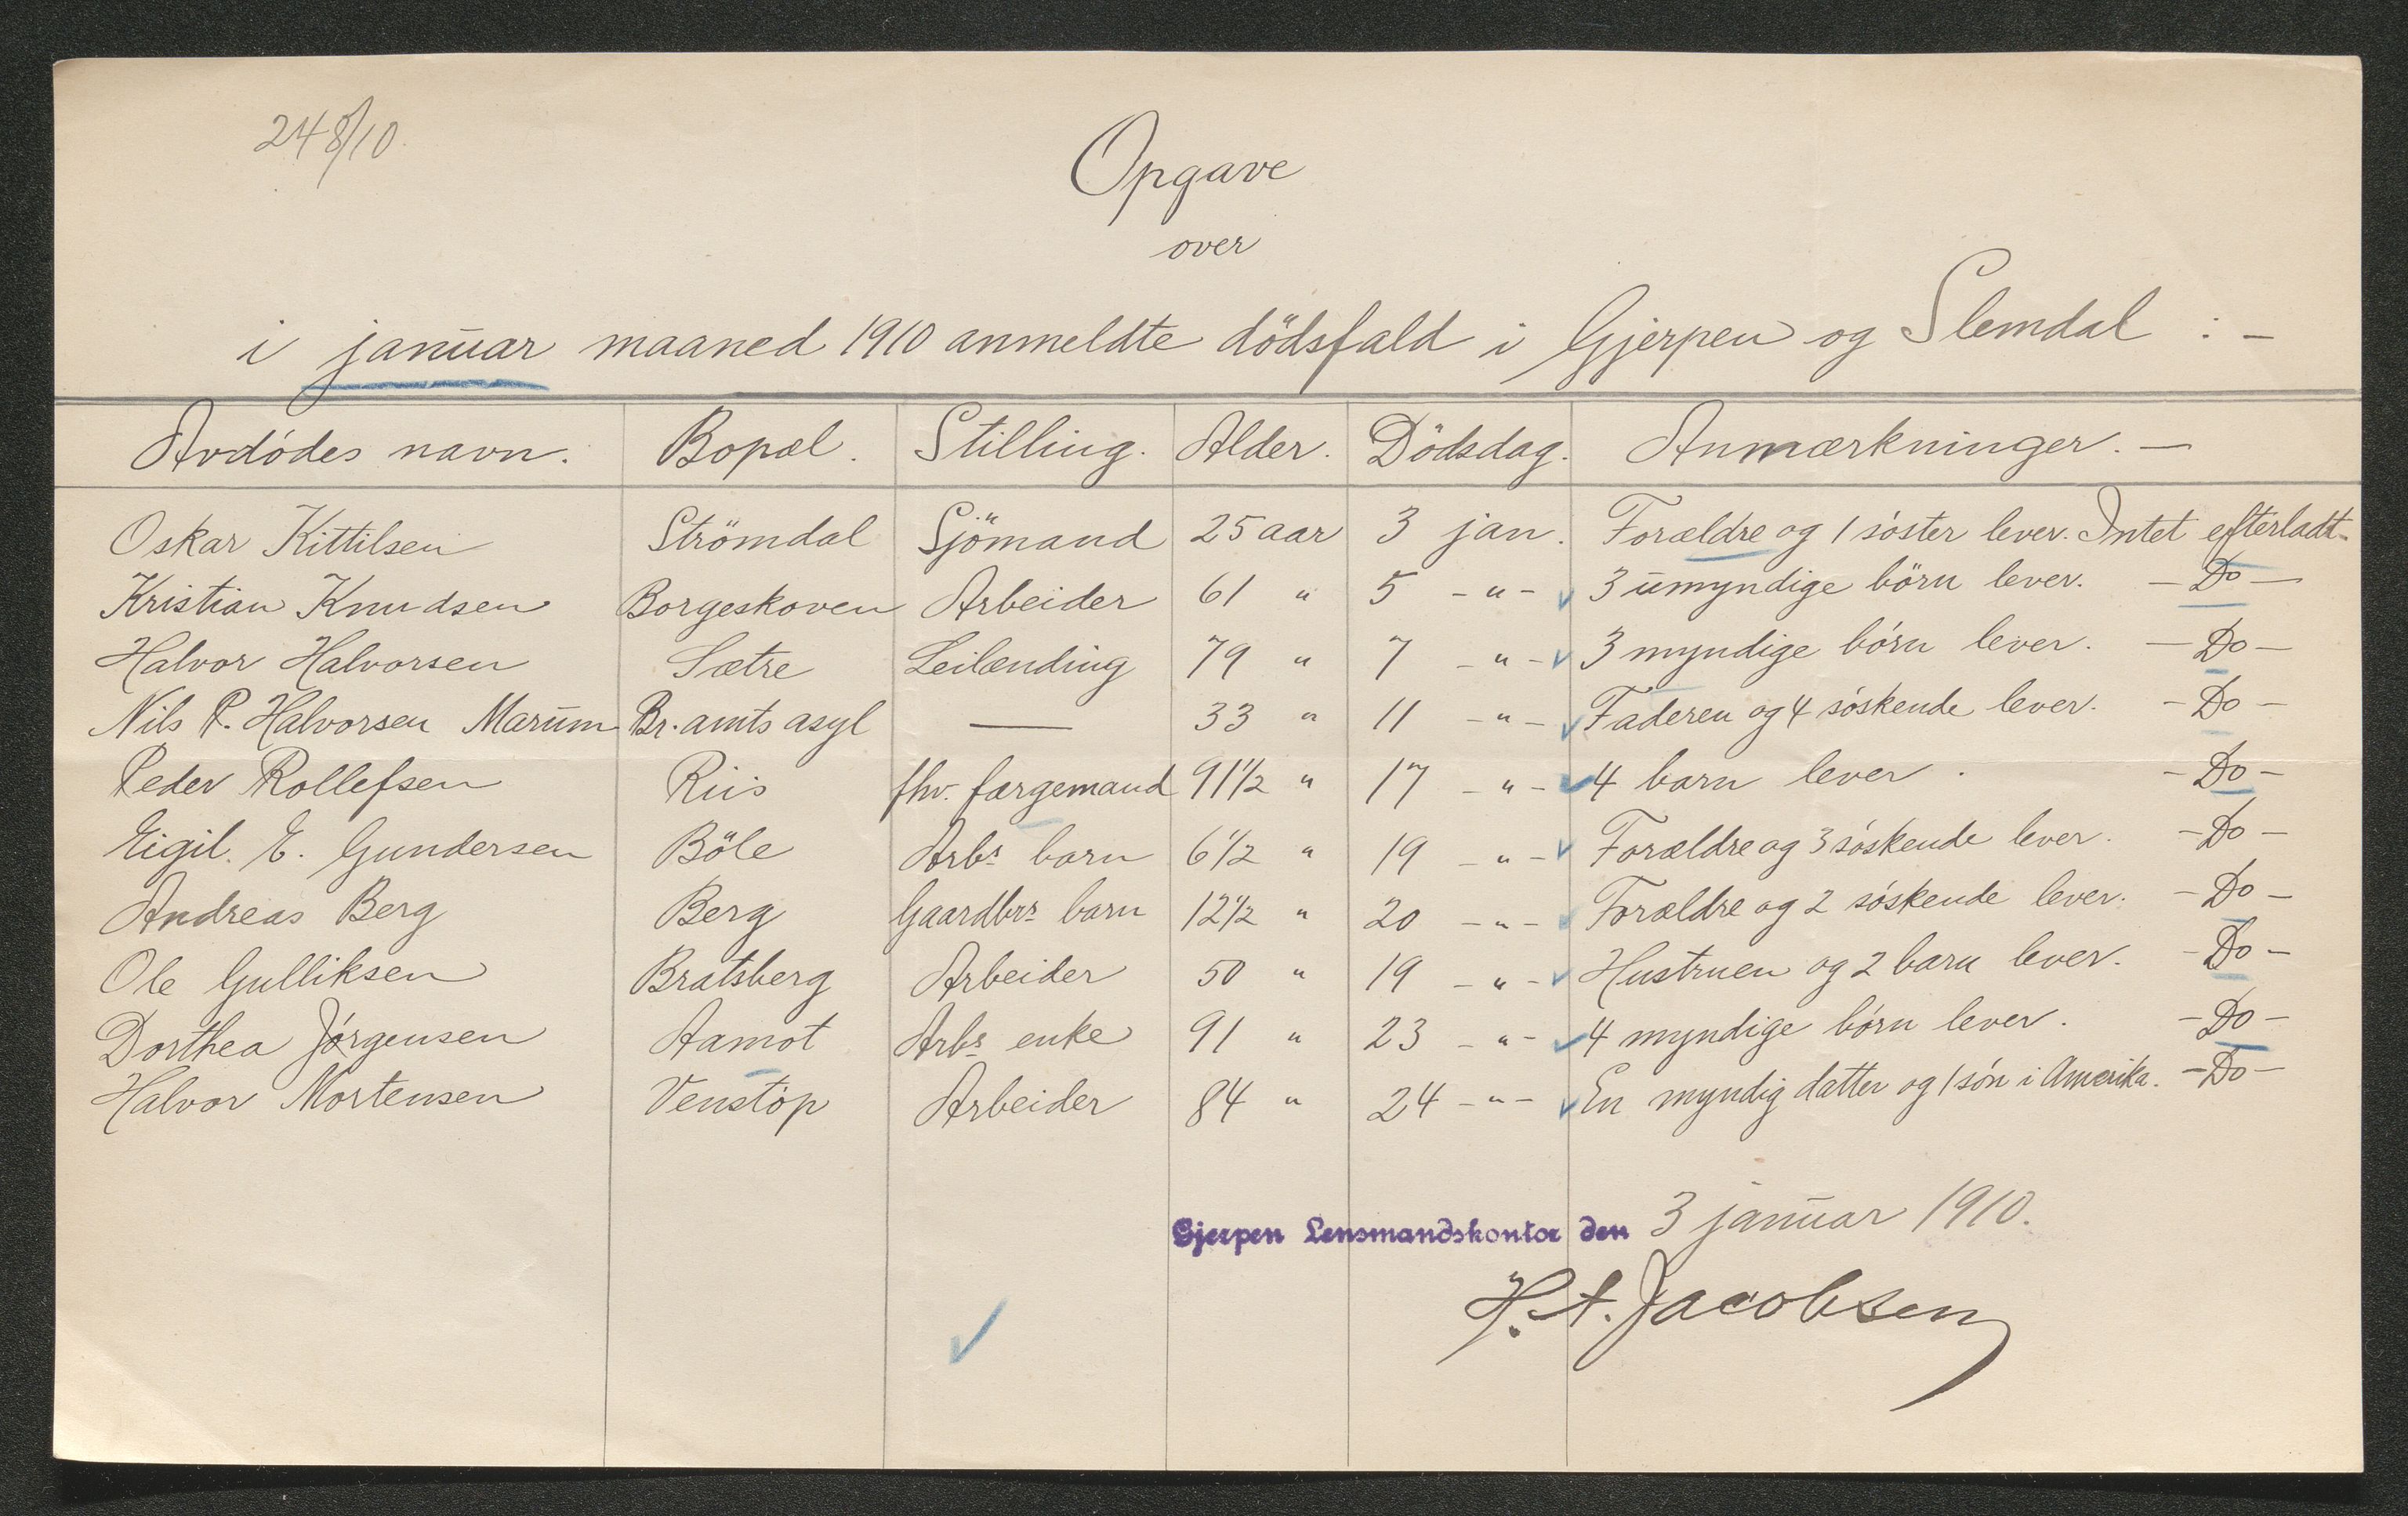 248/10.
Opgave
over
i januar maaned 1910 anmeldte dödsfald i Gjerpen og Slemdal : —
Avdödes navn. Bopæl. Stilling. Alder. Dödsdag. Anmærkninger. —
Oskar Kittilsen Strömdal Sjömand 25 aar 3 jan. Forældre og 1 söster lever. Intet efterladt.
Kristian Knudsen Borgeskoven Arbeider 61 " 5 - " - 3 umyndige börn lever. — Do —
Halvor Halvorsen Sætre Leilænding 79 " 7 - " - 3 myndige börn lever. — Do —
Nils P. Halvorsen Marum Br. amts asyl — 33 " 11 - " - Faderen og 4 söskende lever. - Do -
Peder Rollefsen Riis fhv. færgemand 91½ " 17 - " - 4 barn lever. - Do -
Eigil. E. Gundersen Böle Arbs barn 6½ " 19 - " - Forældre og 3 söskende lever. - Do -
Andreas Berg Berg Gaardbrs barn 12½ " 20 - " - Forældre og 2 söskende lever. - Do -
Ole Gulliksen Bratsberg Arbeider 50 " 19 - " - Hustruen og 2 barn lever. - Do -
Dorthea Jörgensen Aamot Arbs enke 91 " 23 - " - 4 myndige börn lever. - Do -
Halvor Mortensen Venstöp Arbeider 84 " 24 - " - En myndig datter og 1 sön i Amerika. - Do -
Gjerpen Lensmandskontor den 3 januar 1910.
H. A. Jacobsen